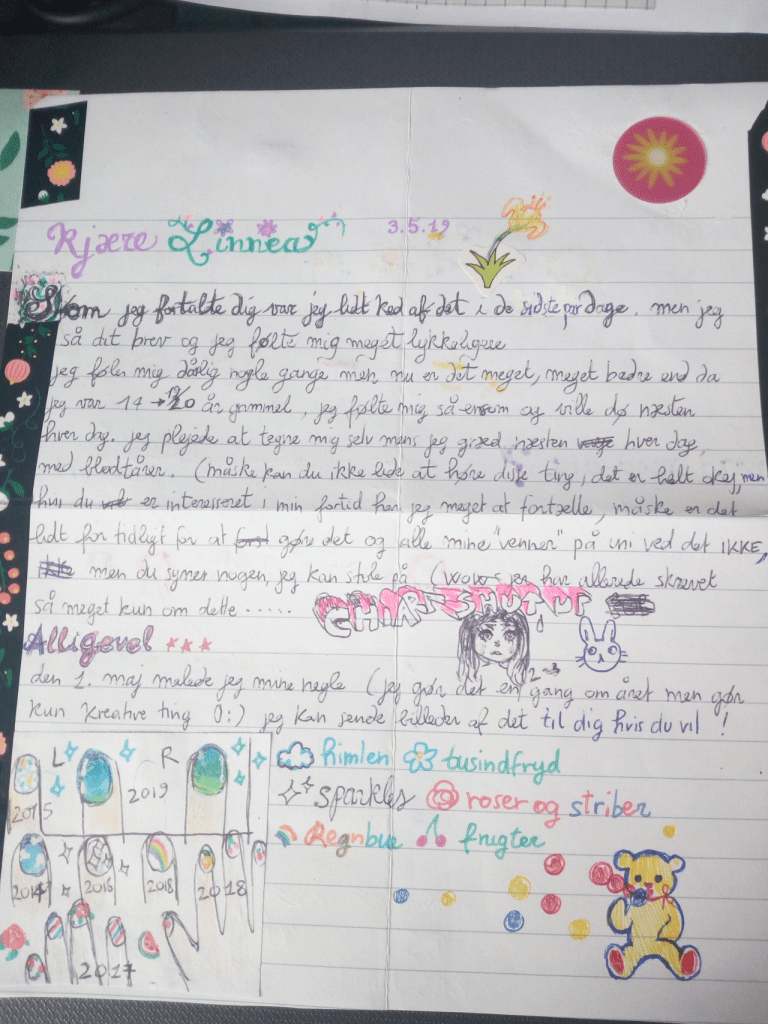 Kjære Linnea 3.5.19
Som jeg fortalte dig var jeg lidt ked af det i de sidste par dage, men jeg
så dit brev og jeg følte mig meget lykkeligere
jeg føler mig dårlig nogle gange men nu er det meget, meget bedre end da
jeg var 17 → 20 år gammel, jeg følte mig så ensom og ville dø næsten
hver dag. jeg plejede at tegne mig selv mens jeg græd næsten hver dag,
med blodtårer. (måske kan du ikke lide at høre diste ting, det er helt okej, men
hvis du er interesseret i min fortid har jeg meget at fortælle, måske er det
lidt for tidligt for at gøre det og alle mine "venner" på uni ved det IKKE,
men du synes nogen, jeg kan stole på (wow jeg har allerede skrevet
så meget kun om dette .....
SHUT UP
Alligevel
den 1. maj malede jeg mine negle (jeg gør det en gang om året men gør
kun kreative ting O:) jeg kan sende billeder af det til dig hvis du vil !
L R
2015 2019
himlen tusindfryd
sparkles roser og striber
Regnbue frugter
2014 2016 2018 2018
2017